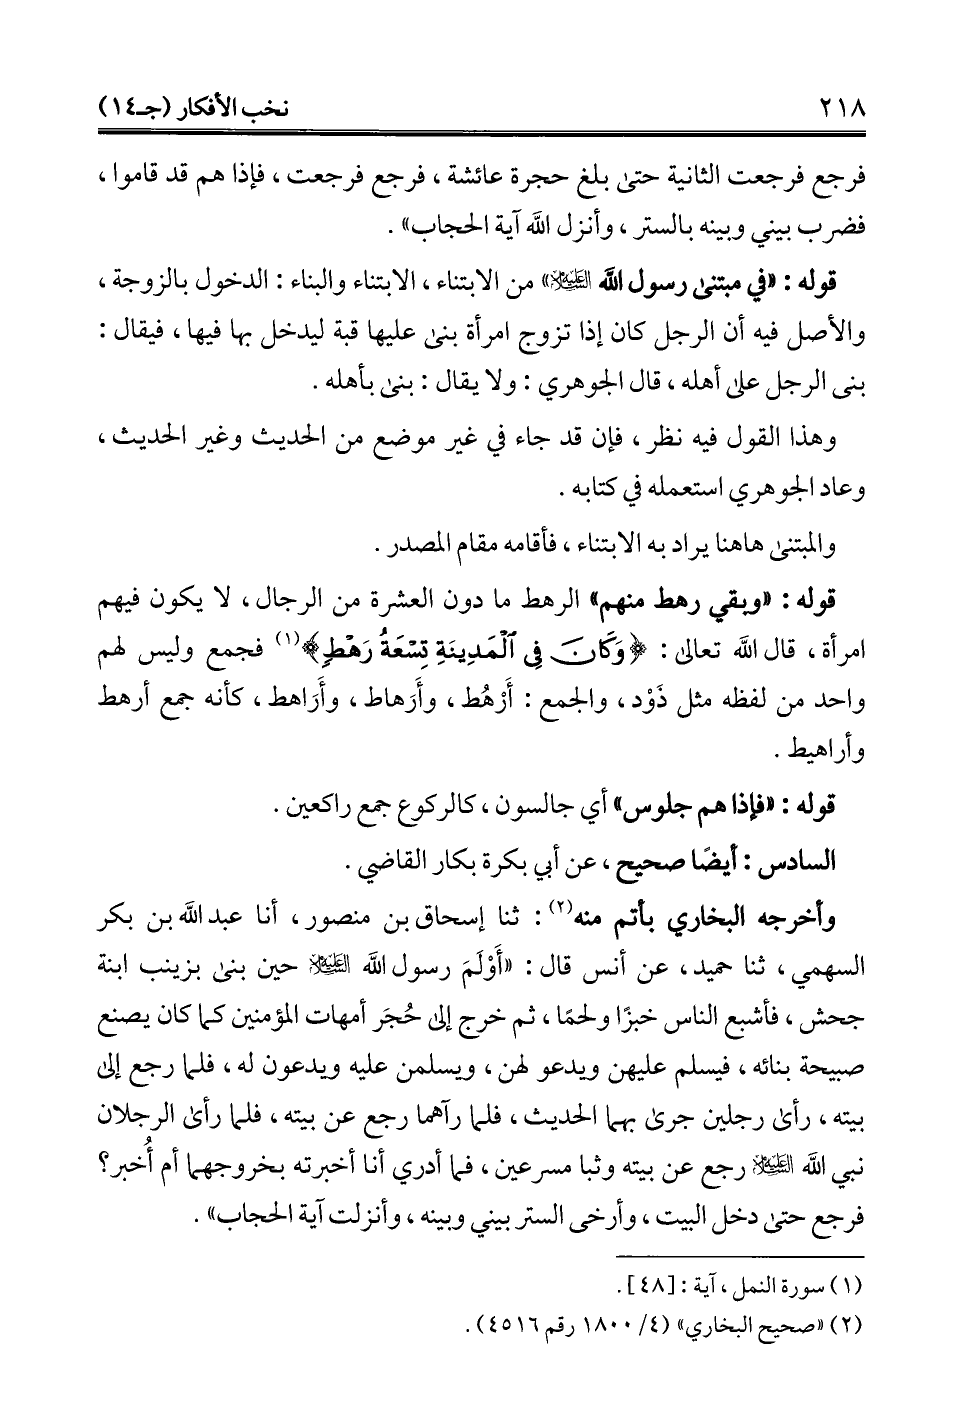 ٢١٨ نخب الأفكار (جـ١٤)
فرجع فرجعت الثانية حتى بلغ حجرة عائشة ، فرجع فرجعت ، فإذا هم قد قاموا ،
فضرب بيني وبينه بالستر ، وأنزل الله آية الحجاب» .
قوله : «في مبتنى رسول الله العَلَيْهِ السَّلَام» من الابتناء ، الابتناء والبناء : الدخول بالزوجة ،
والأصل فيه أن الرجل كان إذا تزوج امرأة بنى عليها قبة ليدخل بها فيها ، فيقال :
بنى الرجل على أهله ، قال الجوهري : ولا يقال : بنى بأهله .
وهذا القول فيه نظر ، فإن قد جاء في غير موضع من الحديث وغير الحديث ،
وعاد الجوهري استعمله في كتابه .
والمبتنى هاهنا يراد به الابتناء ، فأقامه مقام المصدر .
قوله : «وبقي رهط منهم» الرهط ما دون العشرة من الرجال ، لا يكون فيهم
امرأة ، قال الله تعالى : ﴿وَكَانَ فِي ٱلْمَدِينَةِ تِسْعَةُ رَهْطٍ﴾(١) فجمع وليس لهم
واحد من لفظه مثل ذَوْد ، والجمع : أَرْهُط ، وأَرَهاط ، وأَرَاهط ، كأنه جمع أرهط
وأراهيط .
قوله : «فإذا هم جلوس» أي جالسون ، كالركوع جمع راكعين .
السادس : أيضًا صحيح ، عن أبي بكرة بكار القاضي .
وأخرجه البخاري بأتم منه(٢) : ثنا إسحاق بن منصور ، أنا عبد الله بن بكر
السهمي ، ثنا حميد ، عن أنس قال : «أَوْلَمَ رسول الله العَلَيْهِ السَّلَام حين بنى بزينب ابنة
جحش ، فأشبع الناس خبزًا ولحمًا ، ثم خرج إلى حُجَر أمهات المؤمنين كما كان يصنع
صبيحة بنائه ، فيسلم عليهن ويدعو لهن ، ويسلمن عليه ويدعون له ، فلما رجع إلى
بيته ، رأى رجلين جرى بهما الحديث ، فلما رآهما رجع عن بيته ، فلما رأى الرجلان
نبي الله العَلَيْهِ السَّلَام رجع عن بيته وثبا مسرعين ، فما أدري أنا أخبرته بخروجهما أم أُخبر؟
فرجع حتى دخل البيت ، وأرخى الستر بيني وبينه ، وأنزلت آية الحجاب» .
(١) سورة النمل ، آية : [٤٨] .
(٢) «صحيح البخاري» (٤/ ١٨٠٠ رقم ٤٥١٦) .